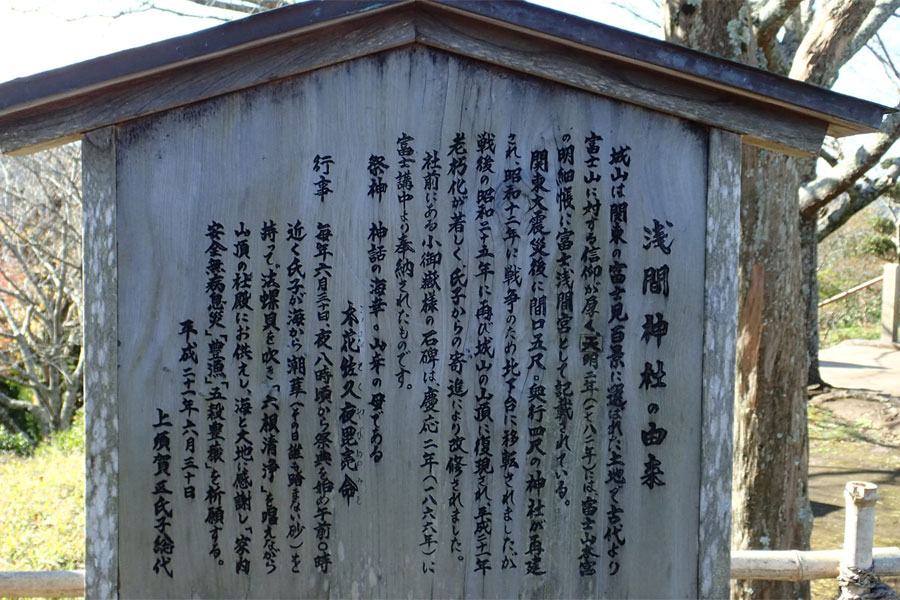 浅間神社の由来
城山は関東の富士見百景に選ばれた土地で古代より
富士山に対する信仰が厚く天明二年(一七八二年)には、富士山本宮
の明細帳に富士浅間宮として記載されている。
関東大震災後に間口五尺。奥行四尺の神社が再建
され、昭和十二年に戦争のため北下台に移転されましたが
戦後の昭和二十五年に再び城山の山頂に復現され、平成二十一年
老朽化が著しく、氏子からの寄進により改修されました。
社前にある小御嶽様の石碑は、慶応二年(一八六六年)に
富士講中より奉納されたものです。
祭神 神話の海幸。山幸の母である
木花佐久夜毘売命
行事 毎年六月三十日、夜八時頃から祭典を始め午前〇時
近く氏子が海から朝草(その日誰も踏まない砂)を
持って、法螺貝を吹き「六根清浄」を唱えながら
山頂の社殿にお供えし、海と大地に感謝し「家内
安全無病息災」「豊漁」「五穀豊穣」を祈願する。
平成二十一年六月三十日
上須賀区氏子総代